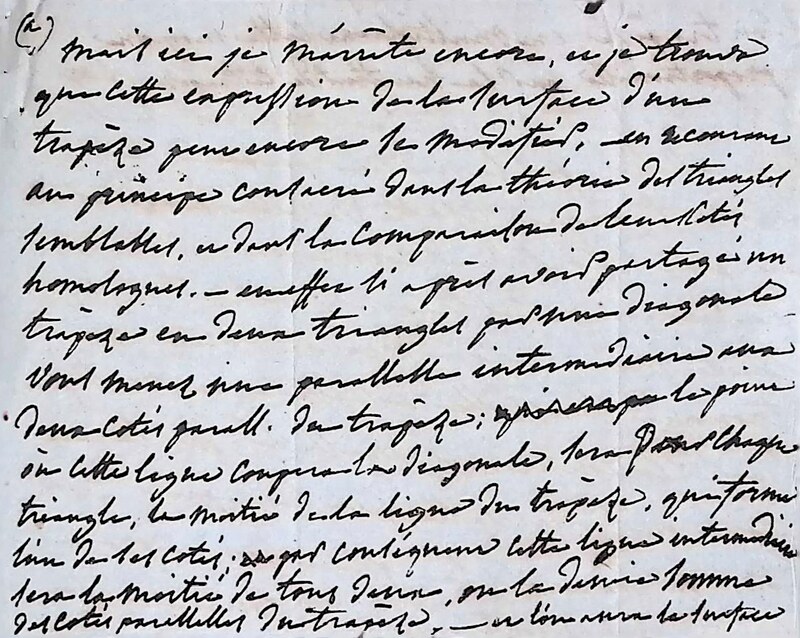 (a)
Mais ici je m'arrête encore, et je trouve
que cette expression de la surface d'un
trapèze peut encore se modifier, — en recourant
au principe consacré dans la théorie des triangles
semblables, et dans la comparaison de leurs cotés
homologues. — en effet si après avoir partagé un
trapèze en deux triangles par une diagonale
vous menez une parallelle intermédiaire aux
deux cotés parall. du trapèze; le point
où cette ligne coupera la diagonale, sera pour chaque
triangle, la moitié de la ligne du trapèze, qui forme
l'un de ses cotés; par conséquent cette ligne intermédiaire
sera la moitié de tous deux, ou la demie somme
des cotés parallelles du trapèze. — et l'on aura la surface